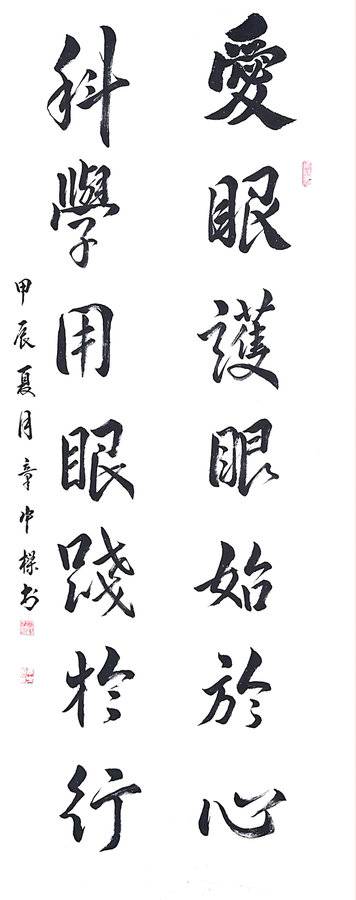 愛眼護眼始於心
科學用眼踐於行
甲辰夏月章中樑书